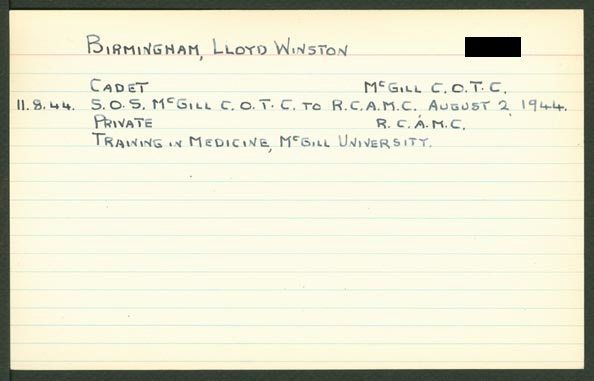 Birmingham, Lloyd Winston
Cadet McGill C.O.T.C.
11.8.44. S.O.S. McGill C.O.T.C. to R.C.A.M.C. August 2, 1944.
Private R.C.A.M.C.
Training in Medicine, McGill University.